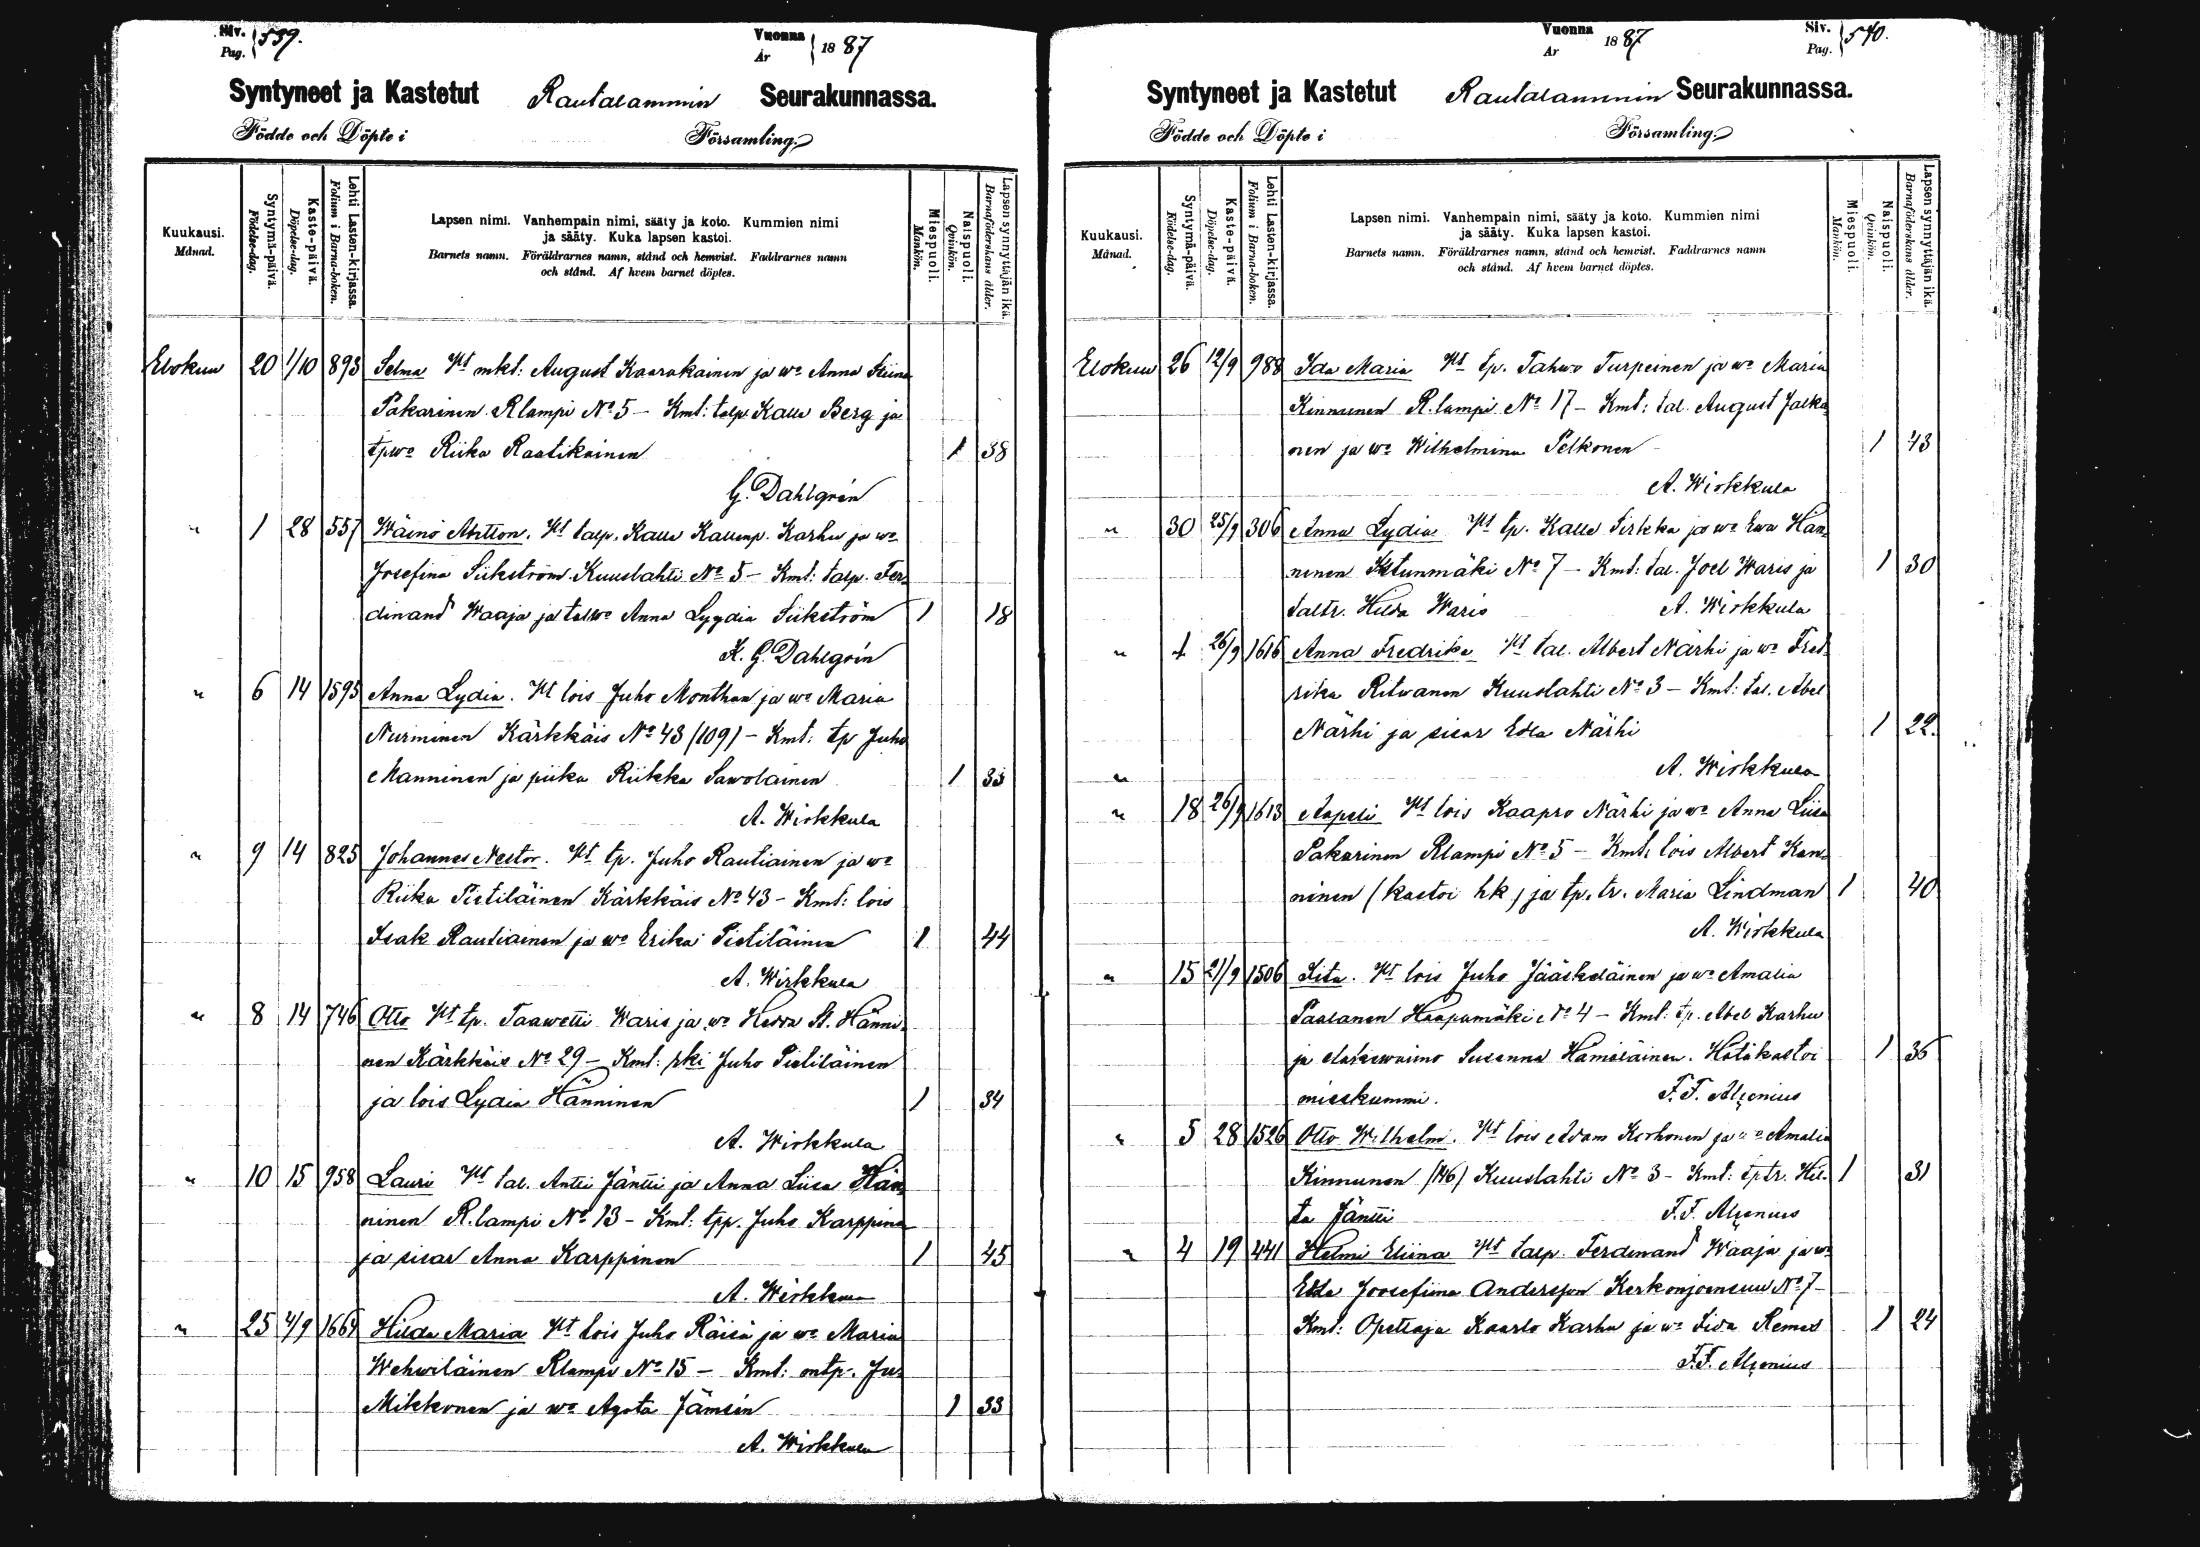 Siv. Pag. 539. Vuonna År 1887
Syntyneet ja Kastetut Rautalammin Seurakunnassa.
Födde och Döpte i Församling.
Kuukausi. Månad.
Syntymä-päivä. Födelse-dag.
Kaste-päivä. Döpelse-dag.
Lehti Lasten-kirjassa. Folium i Barna-boken.
Lapsen nimi. Vanhempain nimi, sääty ja koto. Kummien nimi
ja sääty. Kuka lapsen kastoi.
Barnets namn. Föräldrarnes namn, stånd och hemvist. Faddrarnes namn
och stånd. Af hvem barnet döptes.
Miespuoli. Mankön.
Naispuoli. Qvinkön.
Lapsen synnyttäjän ikä. Barnaföderskans ålder.
Elokuu 20 1/10 893 Selma Vt mkt: August Kaarakainen ja wo Anna Stiina
Pakarinen Rlampi No 5 – Kmt: talp Kalle Berg ja
tpwo Riika Raatikainen 1 38
G. Dahlgrén
" 1 28 557 Wäinö Antton. Vt talp. Kalle Kallenp. Karhu ja wo
Josefina Siikström Kuuslahti No 5 – Kmt: talp. Fer-
dinand Waaja ja talwo Anna Lyydia Siikström 1 18
K. G. Dahlgrén
" 6 14 1595 Anna Lydia. Vt lois Juho Monthan ja wo Maria
Nurminen Kärkkäis No 43 (109) – Kmt: tp Juho
Manninen ja piika Riikka Sawolainen 1 33
A. Wirkkula
" 9 14 825 Johannes Nestor. Vt tp. Juho Rautiainen ja wo
Riika Pietiläinen Kärkkäis No 43 – Kmt: lois
Isak Rautiainen ja wo Erika Pietiläinen 1 44
A. Wirkkula
" 8 14 746 Otto Vt tp. Taawetti Waris ja wo Hedda St. Hänni-
nen Kärkkäis No 29 – Kmt: rki Juho Pietiläinen
ja lois Lydia Hänninen 1 34
A. Wirkkula
" 10 15 958 Lauri Vt tal. Antti Jäntti ja Anna Liisa Hän-
ninen R.lampi No 13 – Kmt: tpp. Juho Karppinen
ja sisar Anna Karppinen 1 45
A. Wirkkula
" 25 4/9 1669 Hilda Maria Vt lois Juho Räisä ja wo Maria
Wehwiläinen Rlampi No 15 – Kmt: entp. Ju-
Mikkonen ja wo Agata Jämsén 1 33
A. Wirkkula
Vuonna År 1887 Siv. Pag. 540.
Syntyneet ja Kastetut Rautalammin Seurakunnassa.
Födde och Döpte i Församling.
Kuukausi. Månad.
Syntymä-päivä. Födelse-dag.
Kaste-päivä. Döpelse-dag.
Lehti Lasten-kirjassa. Folium i Barna-boken.
Lapsen nimi. Vanhempain nimi, sääty ja koto. Kummien nimi
ja sääty. Kuka lapsen kastoi.
Barnets namn. Föräldrarnes namn, stånd och hemvist. Faddrarnes namn
och stånd. Af hvem barnet döptes.
Miespuoli. Mankön.
Naispuoli. Qvinkön.
Lapsen synnyttäjän ikä. Barnaföderskans ålder.
Elokuu 26 12/9 988 Ida Maria Vt tp. Tahwo Turpeinen ja wo Maria
Kinnunen R.lampi No 17 – Kmt: tal. August Jalka-
nen ja wo Wilhelmina Pelkonen 1 43
A. Wirkkula
" 30 25/9 306 Anna Lydia Vt tp. Kalle Sirkka ja wo Ewa Hän-
ninen Istunmäki No 7 – Kmt: tal. Joel Waris ja 1 30
taltr. Hilda Waris A. Wirkkula
" 4 26/9 1616 Anna Fredrika Vt tal. Albert Närhi ja wo Fred-
rika Ritwanen Kuuslahti No 3 – Kmt: tal. Abel
Närhi ja sisar Edla Närhi 1 22.
" A. Wirkkula
" 18 26/9 1613 Aapeli Vt lois Kaapro Närhi ja wo Anna Liisa
Pakarinen Rlampi No 5 – Kmt: lois Albert Kan-
ninen (kastoi hk) ja tp. tr. Maria Lindman 1 40
A. Wirkkula
" 15 21/9 1506 Iita. Vt lois Juho Jääskeläinen ja wo Amalia
Paalanen Haapamäki No 4 – Kmt: tp. Abel Karhu
ja Susanna Hämäläinen. Hätäkastoi 1 36
mieskummi. F. F. Alcenius
" 5 28 1526 Otto Wilhelmi. Vt lois Adam Korhonen ja wo Amalia
Kinnunen (146) Kuuslahti No 3 – Kmt: tptr. Hil- 1 31
ta Jäntti F. F. Alcenius
" 4 19 441 Helmi Eliina Vt talp. Ferdinand Waaja ja wo
Edla Joosefiina Andersson Kerkonjoensuu No 7 –
Kmt: Opettaja Kaarlo Karhu ja wo Iida Remes 1 24
F. F. Alcenius